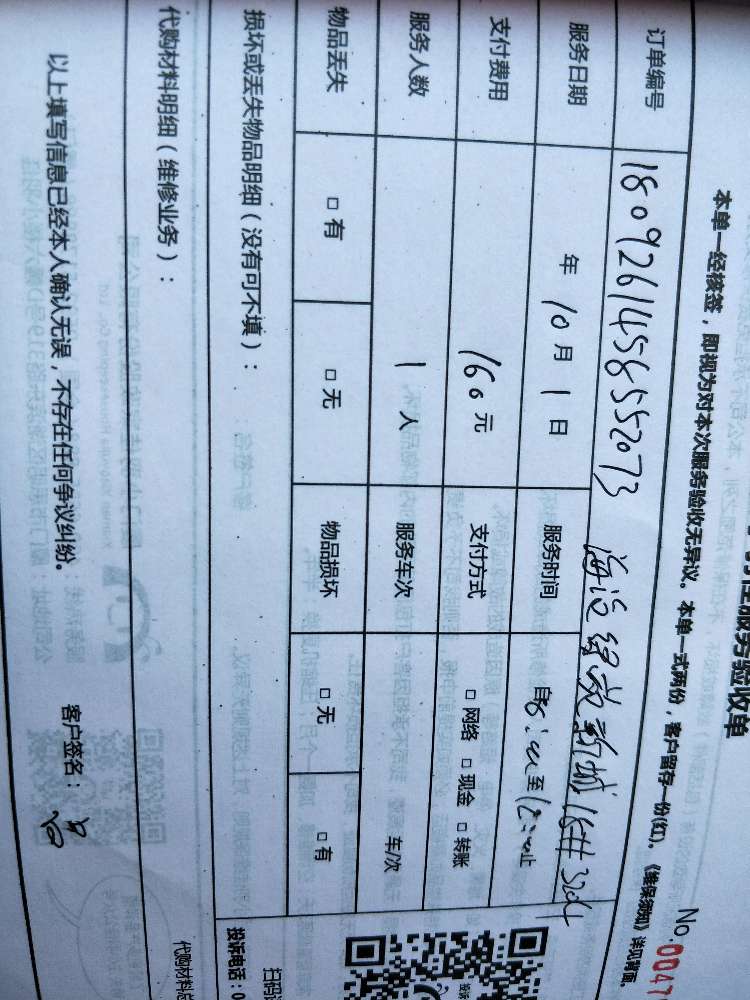 服务验收单
No.0047
本单一经核签，即视为对本次服务验收无异议。本单一式两份，客户留存一份(红)。《维保须知》详见背面。
订单编号 1809261458552073 海沧绿苑新城18#3204
服务日期 年10月1日 服务时间 自8:00至12:00止
支付费用 160元 支付方式 □网络 □现金 □转账
服务人数 1人 服务车次 车/次
物品丢失 □有 □无 物品损坏 □无 □有
损坏或丢失物品明细（没有可不填）：
投诉电话：0
代购材料明细（维修业务）：
代购材料总
以上填写信息已经本人确认无误，不存在任何争议纠纷。 客户签名：